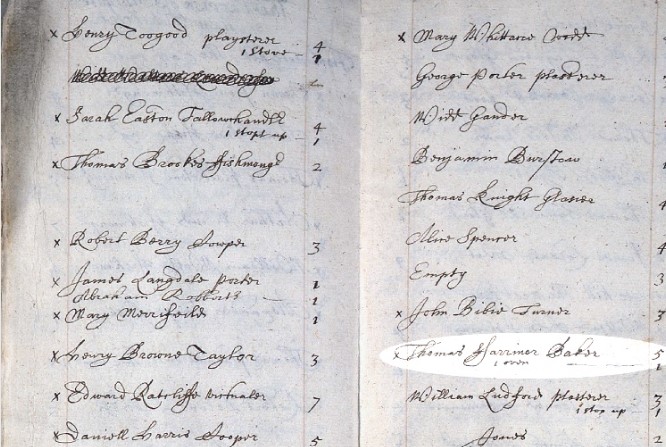 x Henry Toogood playsterer 4
1 Stove — 1
x Sarah Easton Tallowchandlr 4
1 stopt up — 1
x Thomas Brookes fishmongr 2
x Robert Berry Joyper 3
x James Langdale porter 1
Abraham Roberts — 1
x Mary Merrifeild 1
x Henry Browne Taylor 3
x Edward Ratcliffe victualer 7
x Daniell Harris Jooper 5
x Mary Whittacre 4
George Porter plasterer 4
Widd Gander 4
Benjamin Burstow 1
Thomas Knight Glasier 4
Alice Spencer 4
Empty 3
x John Bibie Turner 3
x Thomas Farriner Baker 5
1 oven 1
William Ludford plasterer 3
1 stop up — 1
Jones 2